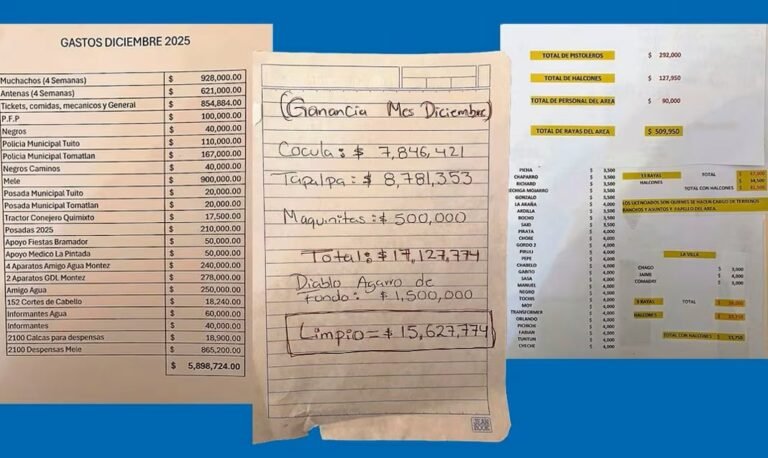 GASTOS DICIEMBRE 2025
Muchachos (4 Semanas) $ 928,000.00
Antenas (4 Semanas) $ 621,000.00
Tickets, comidas, mecanicos y General $ 854,884.00
P.F.P $ 100,000.00
Negros $ 40,000.00
Policia Municipal Tuito $ 110,000.00
Policia Municipal Tomatlan $ 167,000.00
Negros Caminos $ 40,000.00
Mele $ 900,000.00
Posada Municipal Tuito $ 20,000.00
Posada Municipal Tomatlan $ 20,000.00
Tractor Conejero Quimixto $ 17,500.00
Posadas 2025 $ 210,000.00
Apoyo Fiestas Bramador $ 50,000.00
Apoyo Medico La Pintada $ 50,000.00
4 Aparatos Amigo Agua Montez $ 240,000.00
2 Aparatos GDL Montez $ 278,000.00
Amigo Agua $ 250,000.00
152 Cortes de Cabello $ 18,240.00
Informantes Agua $ 60,000.00
Informantes $ 40,000.00
2100 Calcas para despensas $ 18,900.00
2100 Despensas Mele $ 865,200.00
$ 5,898,724.00
(Ganancia Mes Diciembre)
Cocula: $ 7,846,421
Tapalpa: $ 8,781,353
Maquinitas: $ 500,000
Total: $ 17,127,774
Diablo Agarro de
fondo: $ 1,500,000
Limpio = $ 15,627,774
JEAN BOOK
TOTAL DE PISTOLEROS $ 292,000
TOTAL DE HALCONES $ 127,950
TOTAL DE PERSONAL DEL AREA $ 90,000
TOTAL DE RAYAS DEL AREA $ 509,950
PICHA $ 3,500
CHAPARRO $ 3,500
RICHARD $ 3,500
MOJARRO $ 3,500
GONZALO $ 3,500
LA ARAÑA $ 4,000
ARDILLA $ 3,500
BOCHO $ 3,500
SARI $ 3,500
PIRATA $ 4,000
CHORE $ 4,000
GORDO 2 $ 4,000
PIRULI $ 4,000
PEPE $ 4,000
CHABELO $ 4,000
GABITO $ 4,000
SASA $ 4,000
MANUEL $ 4,000
NEGRO $ 4,000
TOCHIS $ 4,000
MOY $ 4,000
TRANSFORMER $ 4,000
ORLANDO $ 4,000
PICHICHI $ 4,000
FABIAN $ 4,000
TUNTUN $ 4,000
CHECHE $ 4,000
13 RAYAS TOTAL $ 47,000
HALCONES $ 34,500
TOTAL CON HALCONES $ 81,500
LOS LICENCIADOS SON QUIENES SE HACEN CARGO DE TERRENOS
RANCHOS Y ASUNTOS Y PAPELEO DEL AREA.
LA VILLA
CHAGO $ 3,000
JAIME $ 4,000
COMANDRY $ 3,000
3 RAYAS TOTAL $
HALCONES $
TOTAL CON HALCONES $